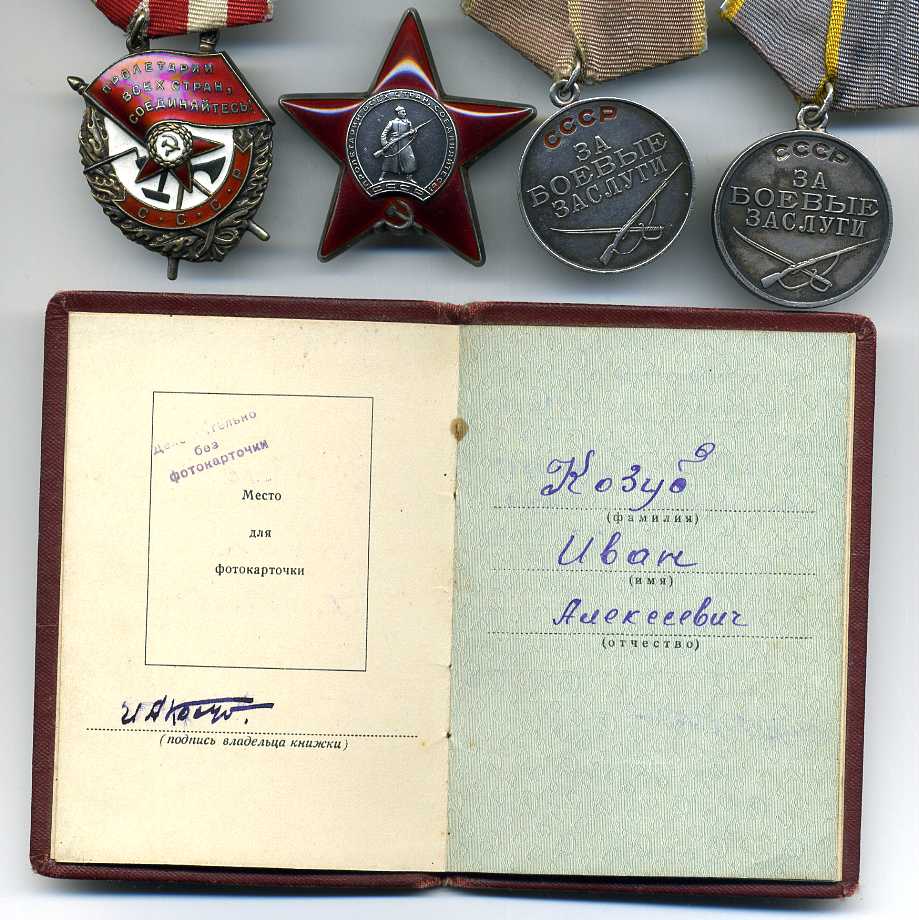 ПРОЛЕТАРИИ
ВСЕХ СТРАН,
СОЕДИНЯЙТЕСЬ!
С·С·С·Р
ПРОЛЕТАРИИ ВСЕХ СТРАН, СОЕДИНЯЙТЕСЬ!
СССР
ЗА
БОЕВЫЕ
ЗАСЛУГИ
СССР
ЗА
БОЕВЫЕ
ЗАСЛУГИ
Действительно
без
фотокарточки
Место
для
фотокарточки
(подпись владельца книжки)
Козуб
(фамилия)
Иван
(имя)
Алексеевич
(отчество)